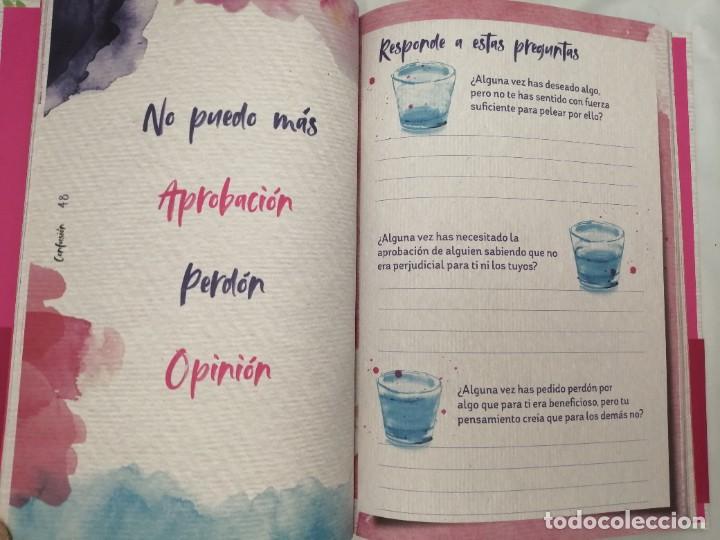 No puedo más
Aprobación
Perdón
Opinión
Confusión 48
Responde a estas preguntas
¿Alguna vez has deseado algo,
pero no te has sentido con fuerza
suficiente para pelear por ello?
¿Alguna vez has necesitado la
aprobación de alguien sabiendo que no
era perjudicial para ti ni los tuyos?
¿Alguna vez has pedido perdón por
algo que para ti era beneficioso, pero tu
pensamiento creía que para los demás no?
todocoleccion.net